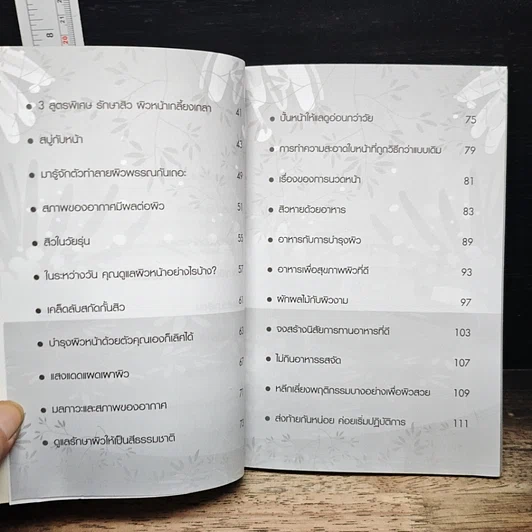 8
20
21
3 สูตรพิเศษ รักษาสิว ผิวหน้าเกลี้ยงเกลา 41
สบู่กับหน้า 43
มารู้จักตัวทำลายผิวพรรณกันเถอะ 49
สภาพของอากาศมีผลต่อผิว 51
สิวในวัยรุ่น 55
ในระหว่างวัน คุณดูแลผิวหน้าอย่างไรบ้าง? 57
เคล็ดลับสกัดกั้นสิว 61
บำรุงผิวหน้าด้วยตัวคุณเองก็เลิศได้ 63
แสงแดดแผดเผาผิว 67
มลภาวะและสภาพของอากาศ
ดูแลรักษาผิวให้เป็นสีธรรมชาติ
ปั้นหน้าให้แลดูอ่อนกว่าวัย 75
การทำความสะอาดใบหน้าที่ถูกวิธีกว่าแบบเดิม 79
เรื่องของการนวดหน้า 81
สิวหายด้วยอาหาร 83
อาหารกับการบำรุงผิว 89
อาหารเพื่อสุขภาพผิวที่ดี 93
ผักผลไม้กับผิวงาม 97
จงสร้างนิสัยการทานอาหารที่ดี 103
ไม่กินอาหารรสจัด 107
หลีกเลี่ยงพฤติกรรมบางอย่างเพื่อผิวสวย 109
ส่งท้ายกันหน่อย ค่อยเริ่มปฏิบัติการ 111